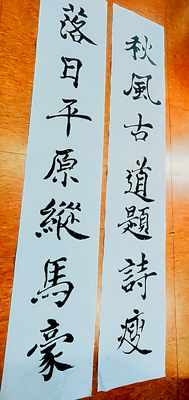 秋風古道題詩瘦
落日平原縱馬豪